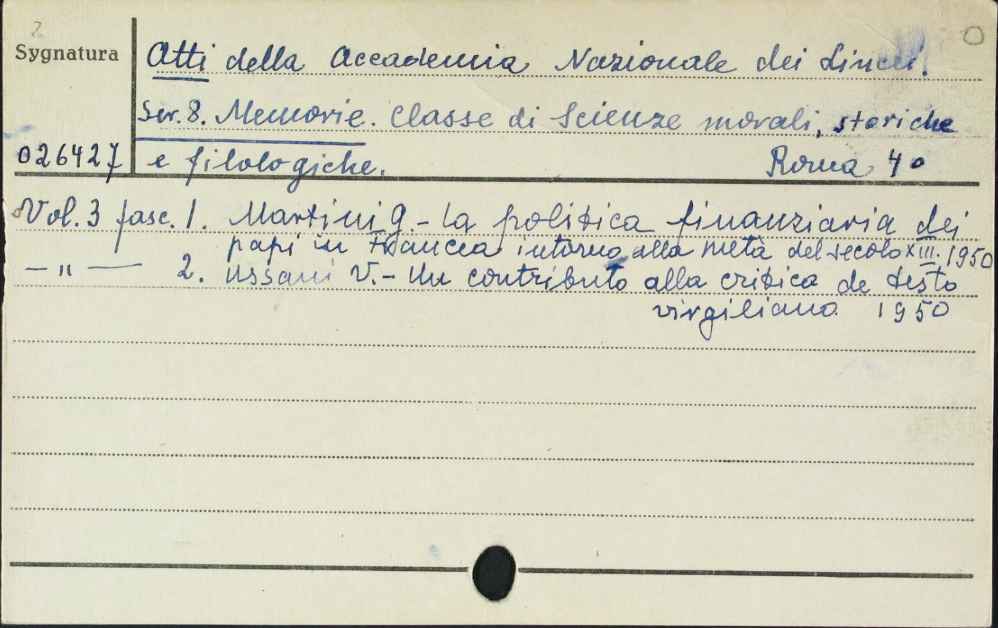 Sygnatura
Atti della Accademia Nazionale dei Lincei.
Ser. 8. Memorie. Classe di Scienze morali, storiche
026427 e filologiche. Roma 4°
Vol. 3 fasc. 1. Martini G. - La politica finanziaria dei
papi in Francia intorno alla metà del secolo XIII. 1950
— " — 2. Ussani V. - Un contributo alla critica de testo
virgiliano 1950